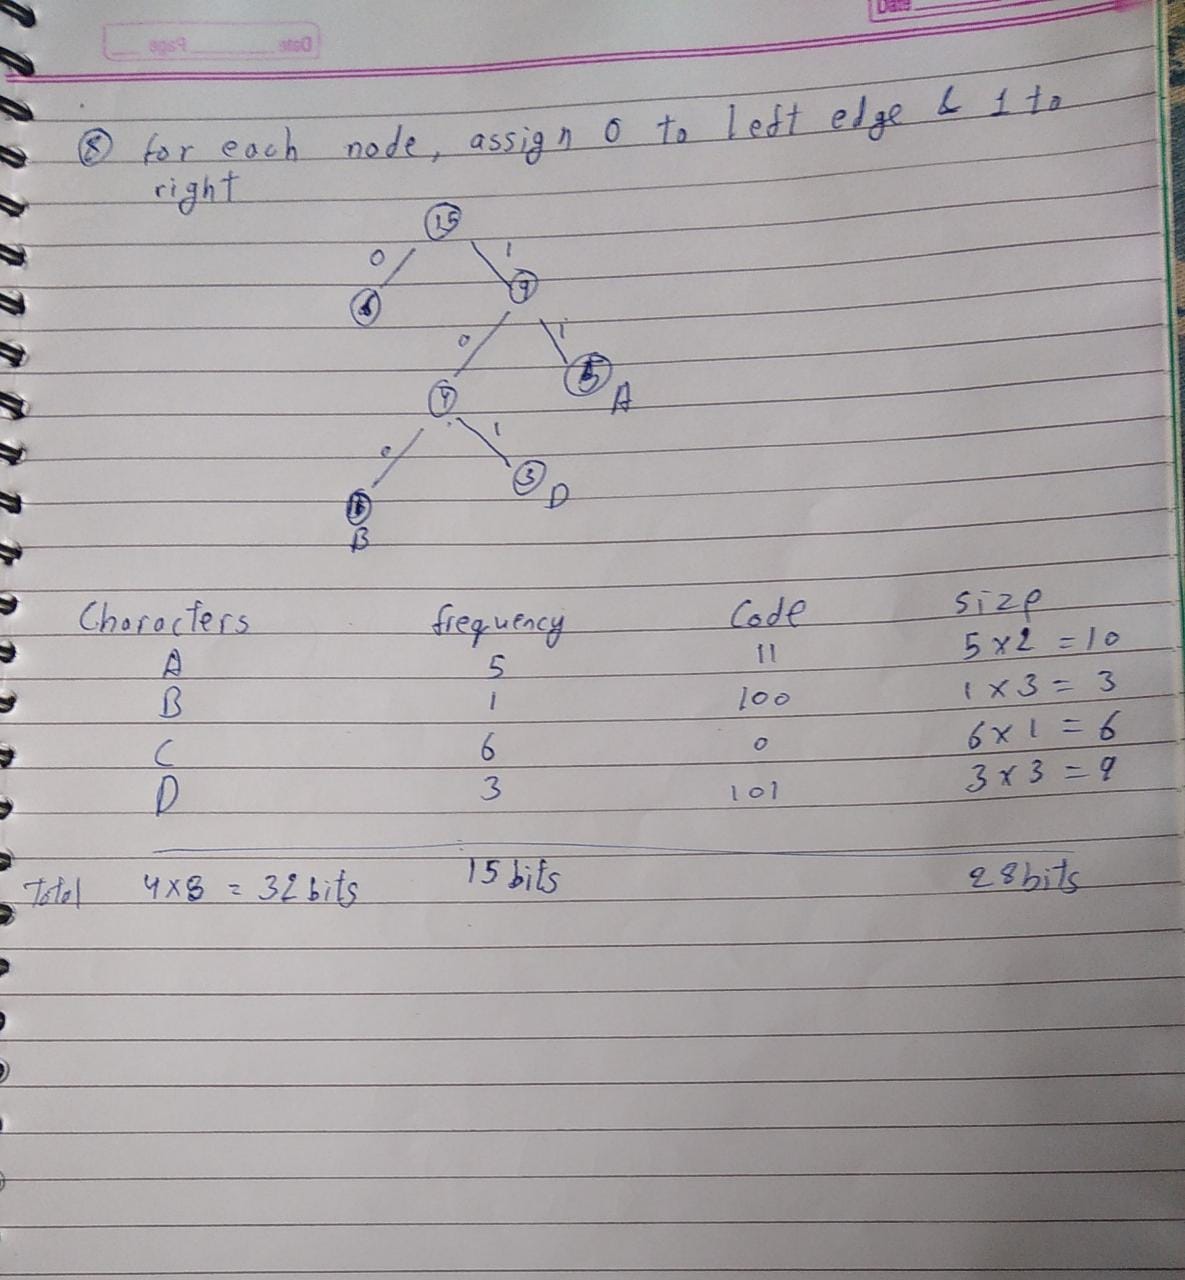 Date
Date Page
⑧ for each node, assign 0 to left edge & 1 to
right
15
0 1
6 9
0 1
4 5 A
0 1
1 3 D
B
Characters frequency Code Size
A 5 11 5 x 2 = 10
B 1 100 1 x 3 = 3
C 6 0 6 x 1 = 6
D 3 101 3 x 3 = 9
Total 4 x 8 = 32 bits 15 bits 28 bits